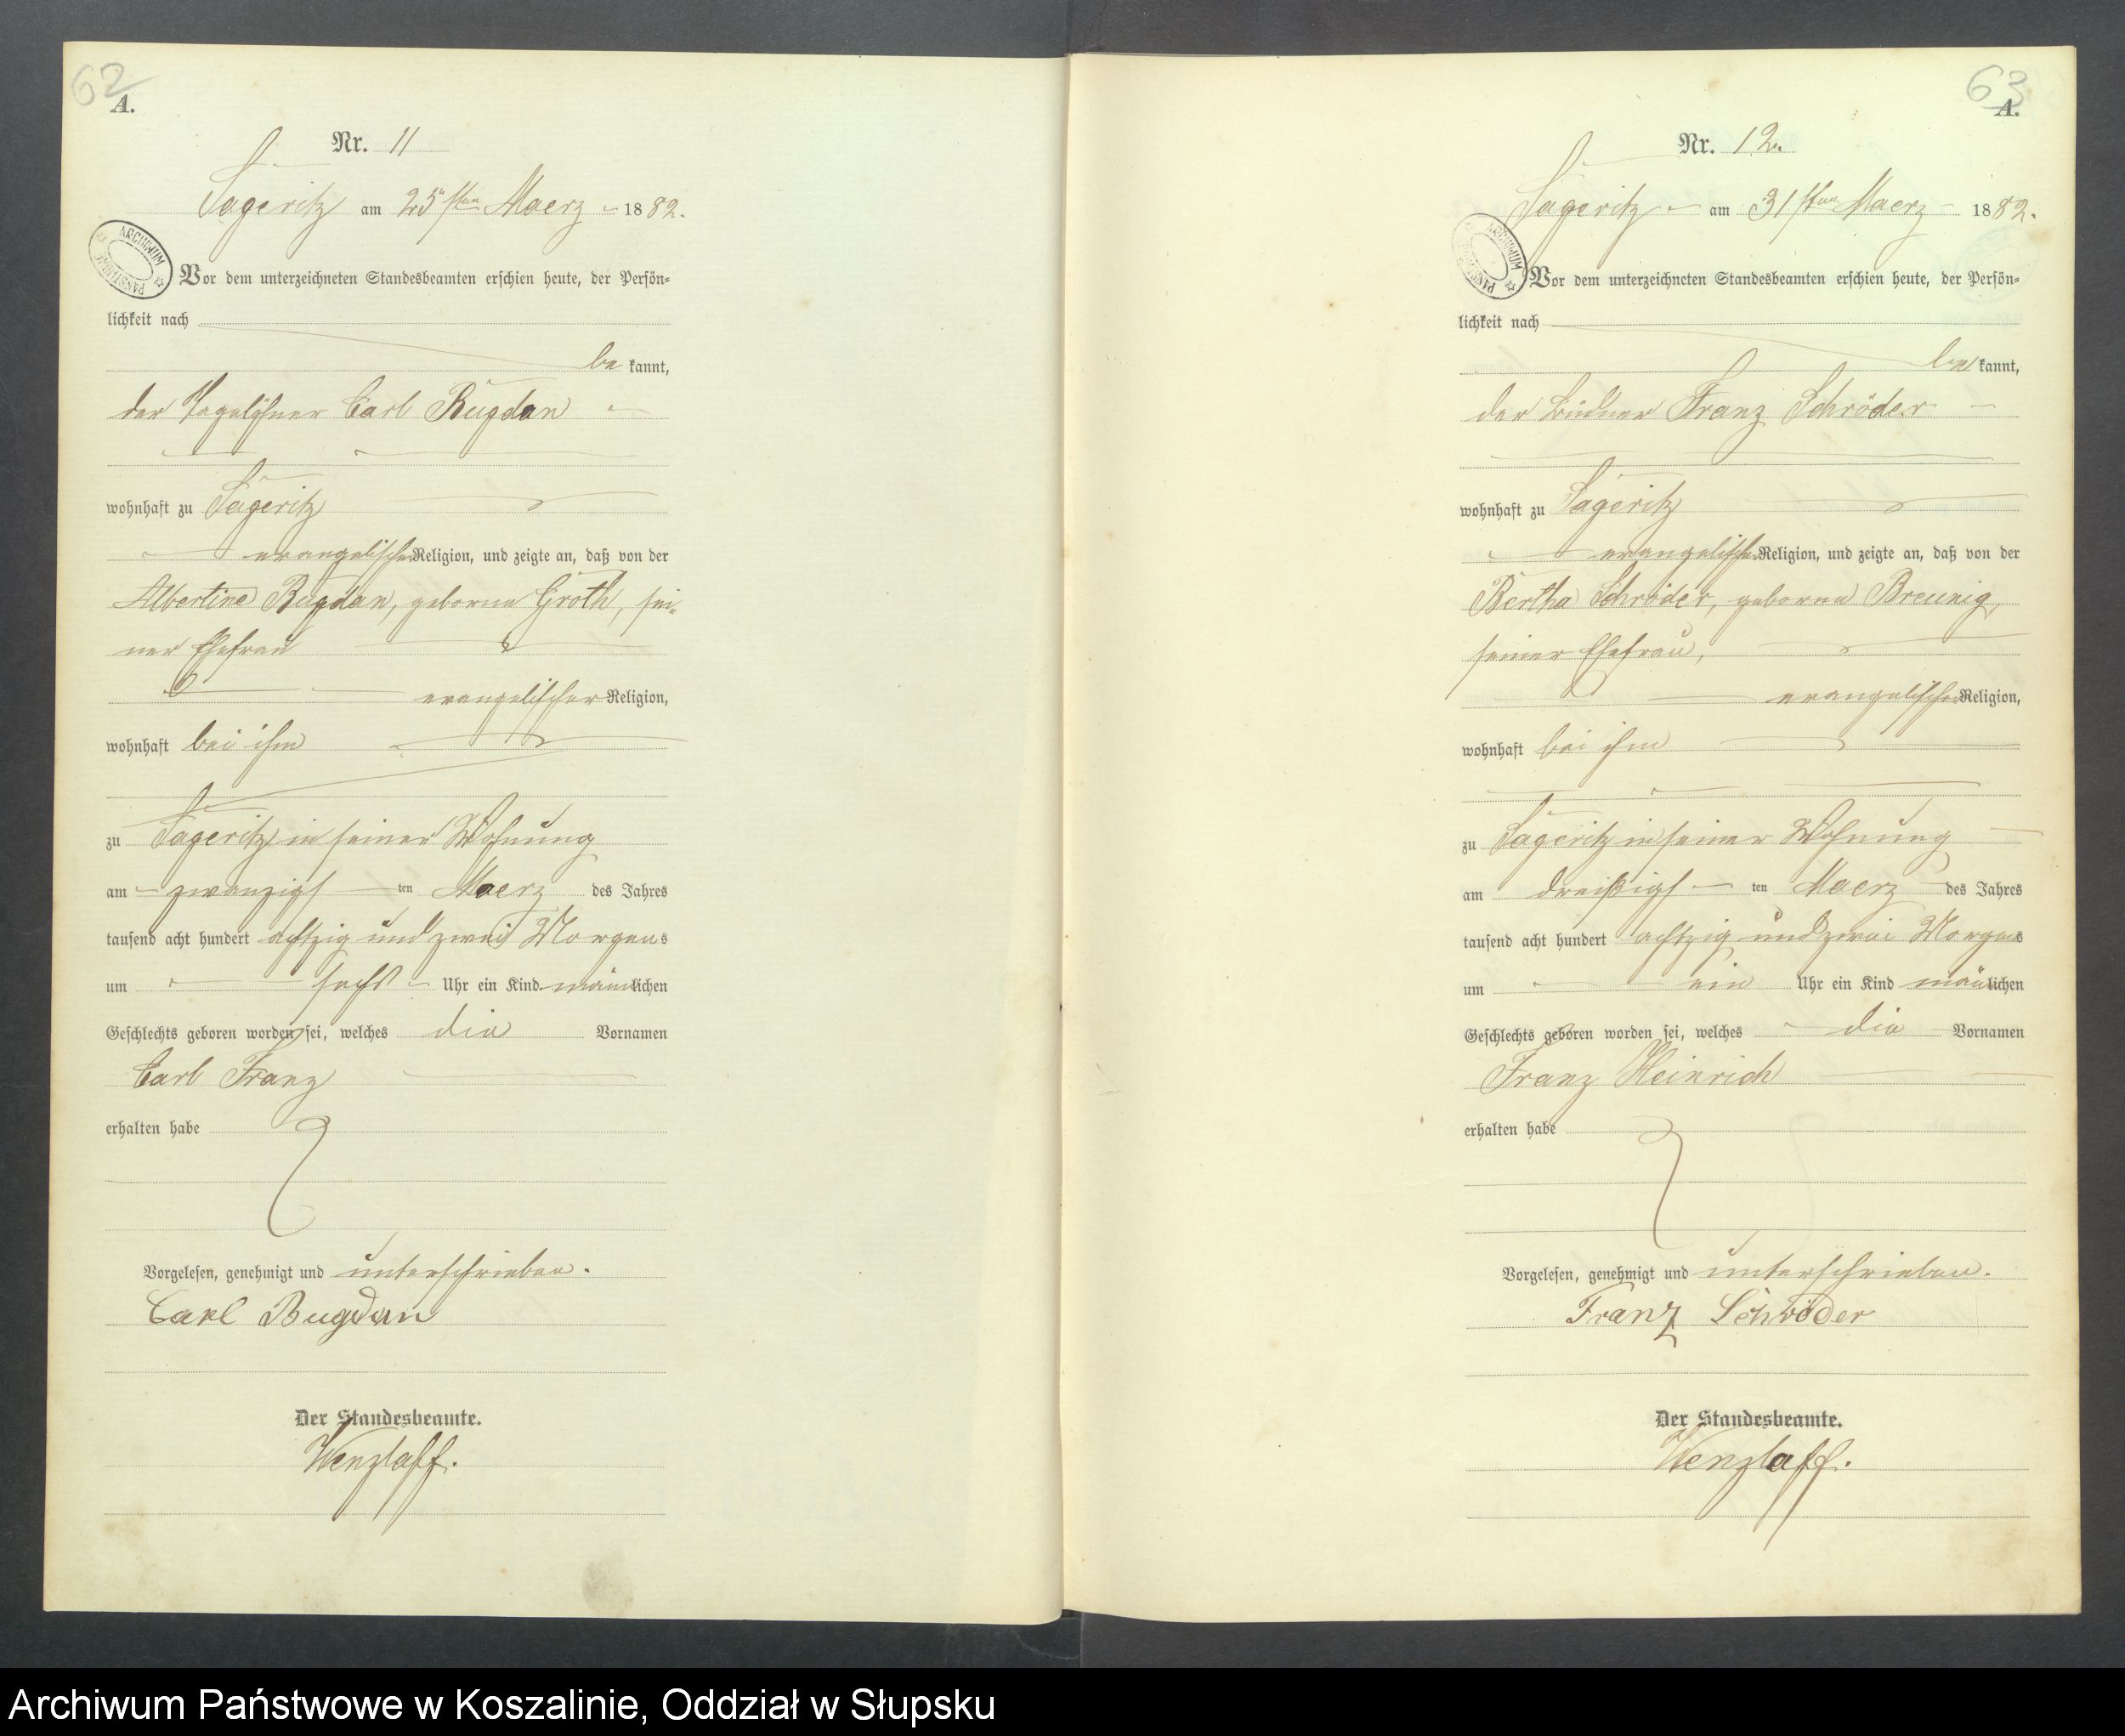 62
A.
Nr. 11
Sageritz am 25sten Maerz 1882.
ARCHIWUM PAŃSTWOWE
Vor dem unterzeichneten Standesbeamten erschien heute, der Persön-
lichkeit nach
bekannt,
der Tagelöhner Carl Bugdan
wohnhaft zu Sageritz
evangelischer Religion, und zeigte an, daß von der
Albertine Bugdan, geborne Groth, sei-
ner Ehefrau
evangelischer Religion,
wohnhaft bei ihm
zu Sageritz in seiner Wohnung
am zwanzigsten Maerz des Jahres
tausend acht hundert achtzig und zwei Morgens
um sechs Uhr ein Kind männlichen
Geschlechts geboren worden sei, welches die Vornamen
Carl Franz
erhalten habe
Vorgelesen, genehmigt und unterschrieben.
Carl Bugdan
Der Standesbeamte.
Wenzlaff.
63
A.
Nr. 12.
Sageritz am 31sten Maerz 1882.
ARCHIWUM
Vor dem unterzeichneten Standesbeamten erschien heute, der Persön-
lichkeit nach
bekannt,
der Büdner Franz Schröder
wohnhaft zu Sageritz
evangelischer Religion, und zeigte an, daß von der
Bertha Schröder, geborne Breunig,
seiner Ehefrau,
evangelischer Religion,
wohnhaft bei ihm
zu Sageritz in seiner Wohnung
am dreißigsten Maerz des Jahres
tausend acht hundert achtzig und zwei Morgens
um ein Uhr ein Kind männlichen
Geschlechts geboren worden sei, welches die Vornamen
Franz Heinrich
erhalten habe
Vorgelesen, genehmigt und unterschrieben.
Franz Schröder
Der Standesbeamte.
Wenzlaff.
Archiwum Państwowe w Koszalinie, Oddział w Słupsku